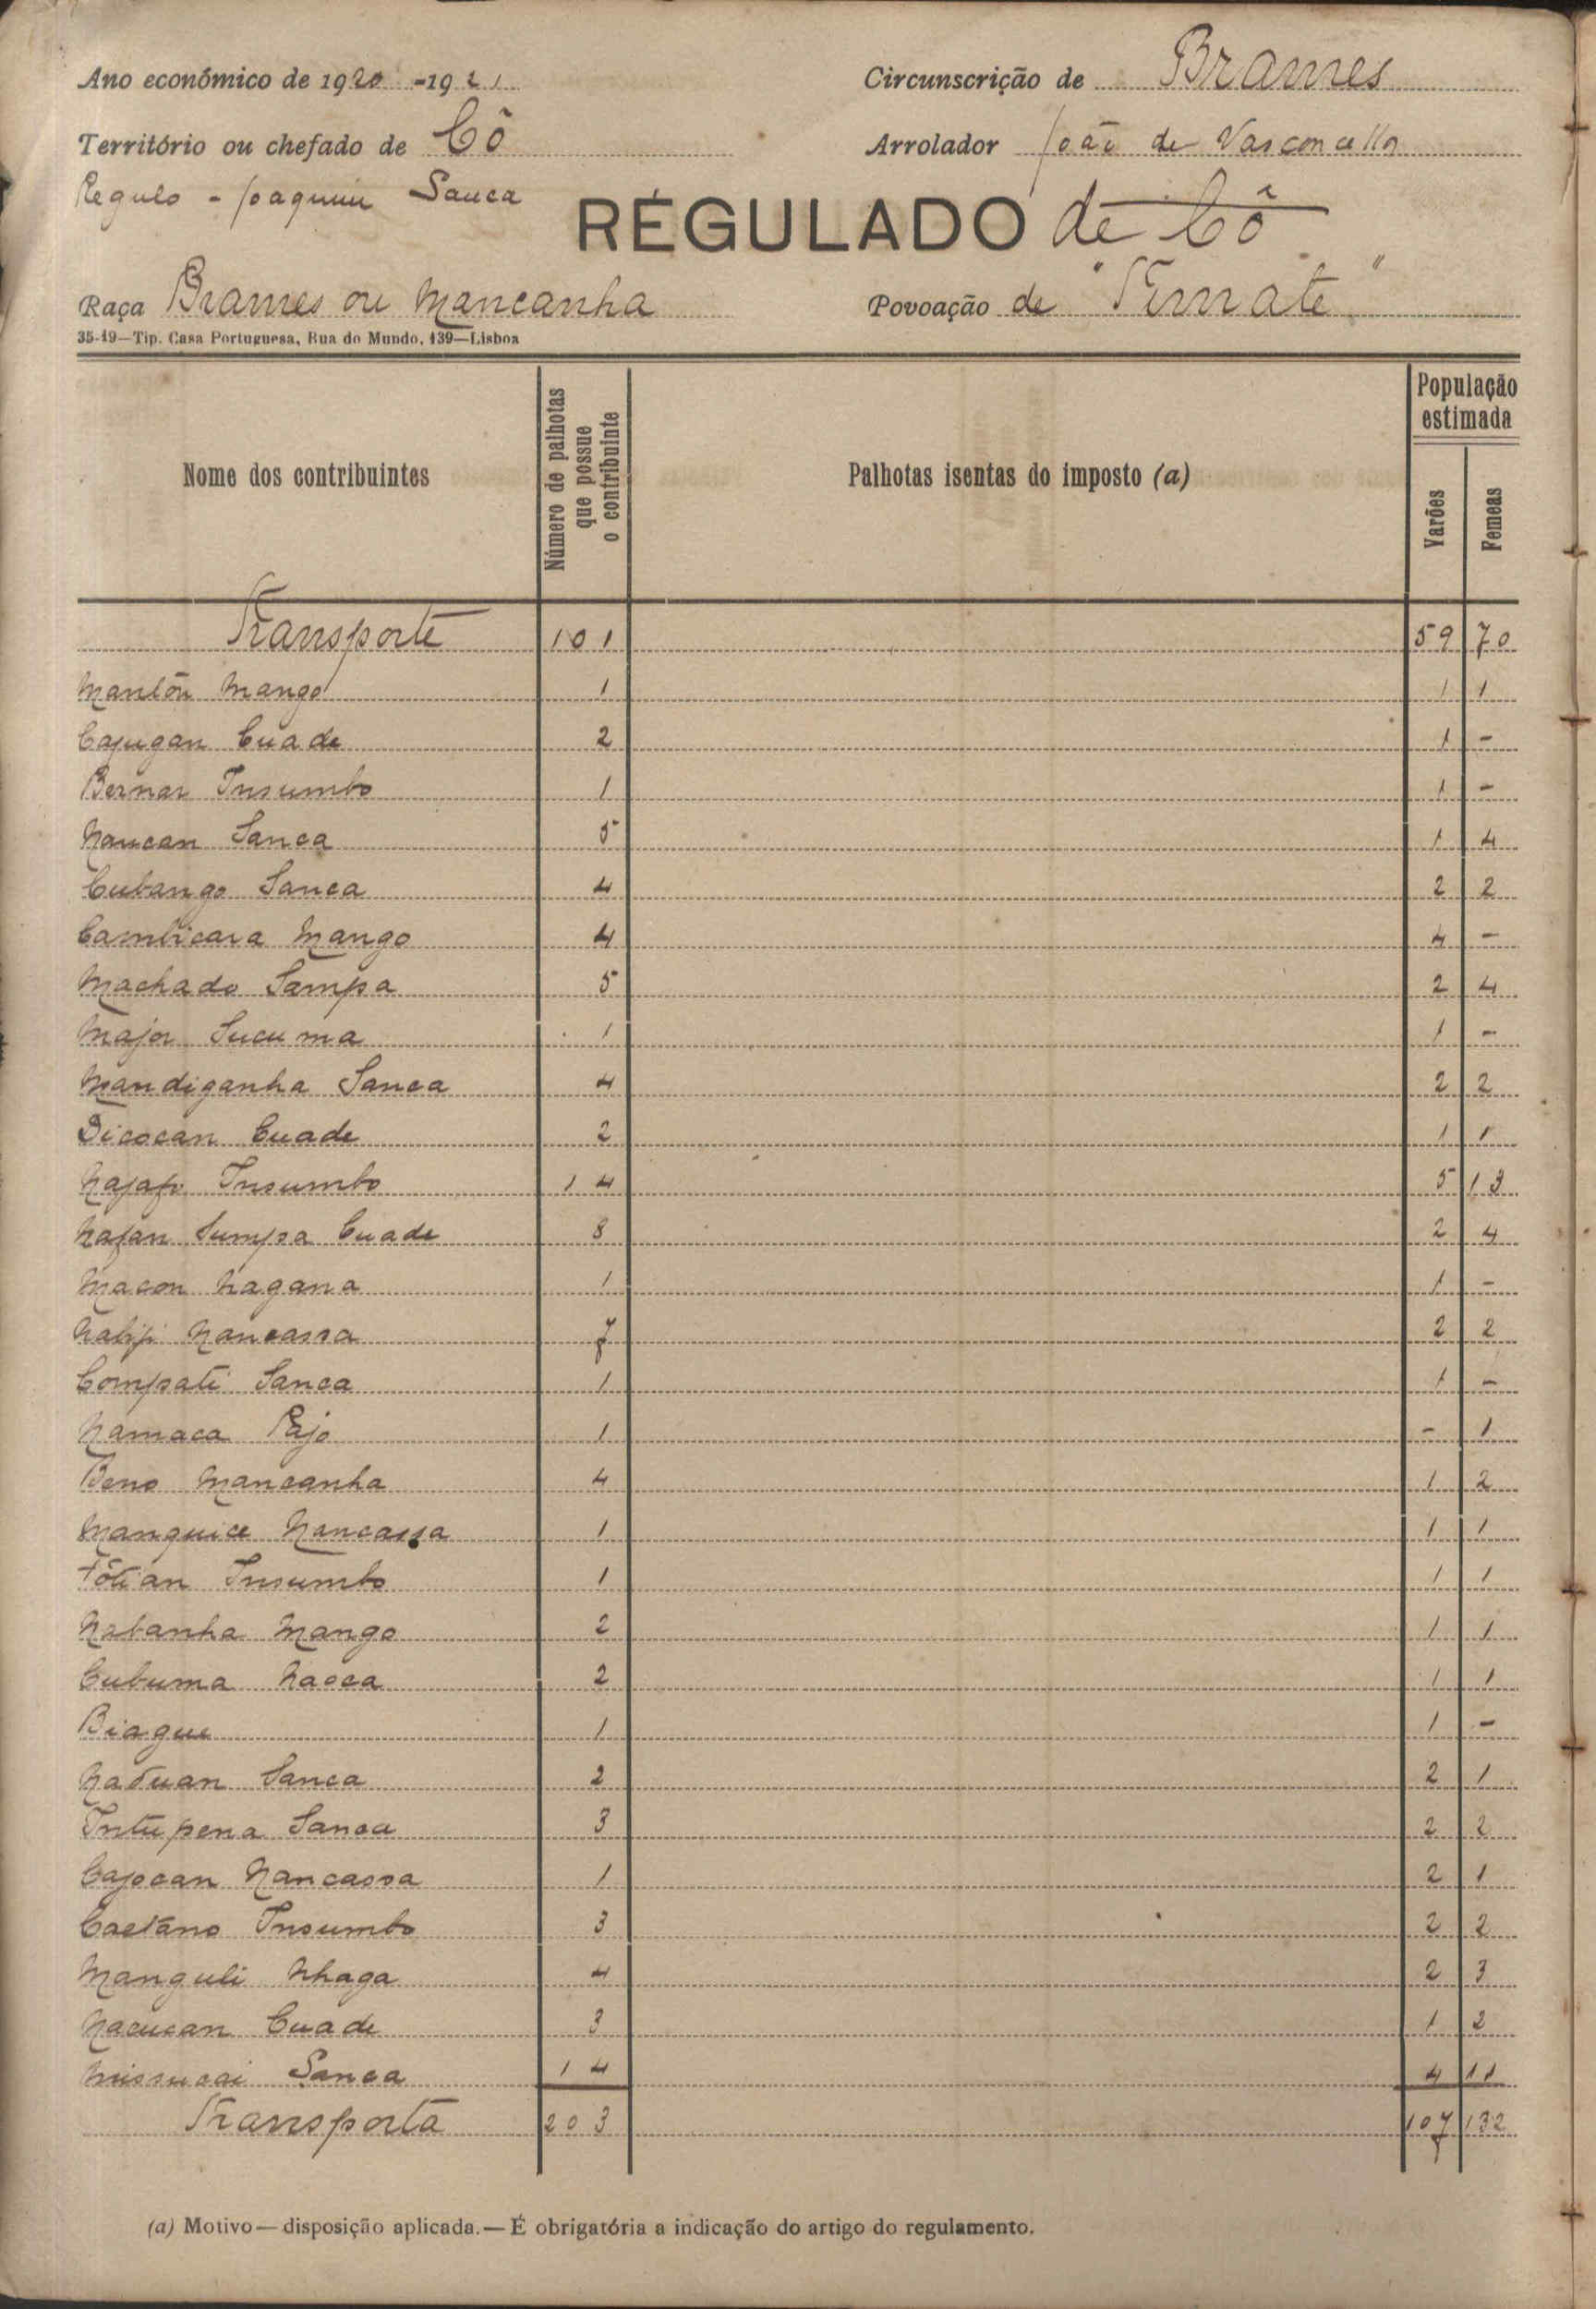 Ano económico de 1920-1921
Circunscrição de Brames
Território ou chefado de Cô
Arrolador João de Vasconcellos
Regulo - Joaquim Sanca
RÉGULADO de Cô
Raça Brames ou Mancanha
Povoação de "Timate"
35-19—Tip. Casa Portuguesa, Rua do Mundo, 139—Lisboa
Nome dos contribuintes
Número de palhotas que possue o contribuinte
Palhotas isentas do imposto (a)
População estimada
Varões
Femeas
Transporte 101 59 70
Manlõn Mango 1 1 1
Cajugan Cuade 2 1 -
Bernar Insumbo 1 1 -
Naucan Sanca 5 1 4
Cubango Sanca 4 2 2
Cambicara Mango 4 4 -
Machado Sampa 5 2 4
Major Sucuma 1 1 -
Mandiganha Sanca 4 2 2
Dicocan Cuade 2 1 1
Najafo Insumbo 14 5 13
Nafan Sumpa Cuade 8 2 4
Macon Nagana 1 1 -
Nalifi Nancassa 7 2 2
Compati Sanca 1 1 -
Namaca Pajo 1 - 1
Beno Mancanha 4 1 2
Manquice Nancassa 1 1 1
Fótian Insumbo 1 1 1
Nabanha Mango 2 1 1
Cubuma Nacca 2 1 1
Biague 1 1 -
Naduan Sanca 2 2 1
Intupena Sanca 3 2 2
Cajocan Nancassa 1 2 1
Caetano Insumbo 3 2 2
Manguli Nhaga 4 2 3
Nacucan Cuade 3 1 2
Missucai Sanca 14 4 11
Transporta 203 107 132
(a) Motivo — disposição aplicada. — É obrigatória a indicação do artigo do regulamento.